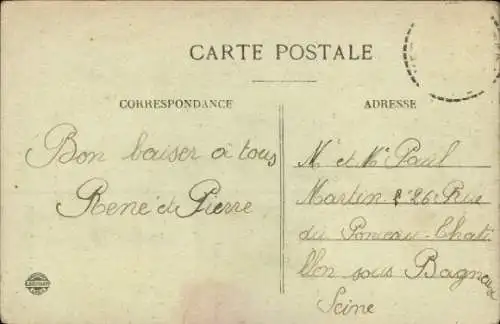 CARTE POSTALE
CORRESPONDANCE
ADRESSE
Bon baiser à tous
René et Pierre
Mr et Me Paul
Martin 26 Rue
du Ponceau Chati
llon sous Bagneux
Seine